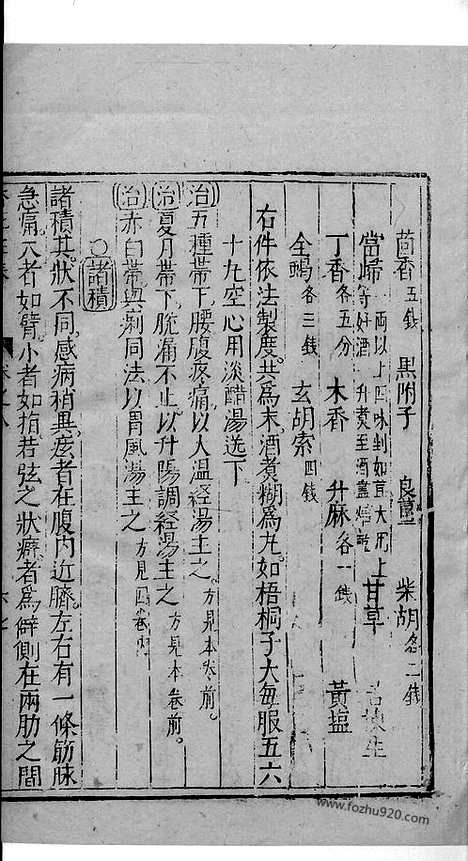 茴香五錢 黑附子 良薑 柴胡各二錢
當歸一兩以上四味剉如豆大用上等好酒一升煮至酒盡焙乾 甘草
丁香各五分 木香 升麻各一錢 黃塩
全蝎各三錢 玄胡索四錢
右件依法製度。共為末酒煮糊為丸。如梧桐子大每服五六
十丸空心用淡醋湯送下
治五種帶下腰腹疼痛以人溫経湯主之。方見本卷前。
治夏月帶下脫漏不止以升陽調経湯主之方見本卷前。
治赤白帶與痢同法以胃風湯主之方見四卷內
○諸積
諸積其狀不同。感病稍異。痃者在腹內近臍。左右有一條筋脉
急痛。大者如臂。小者如指。若弦之狀。癖者為僻側在兩肋之間
www.fozhu920.com